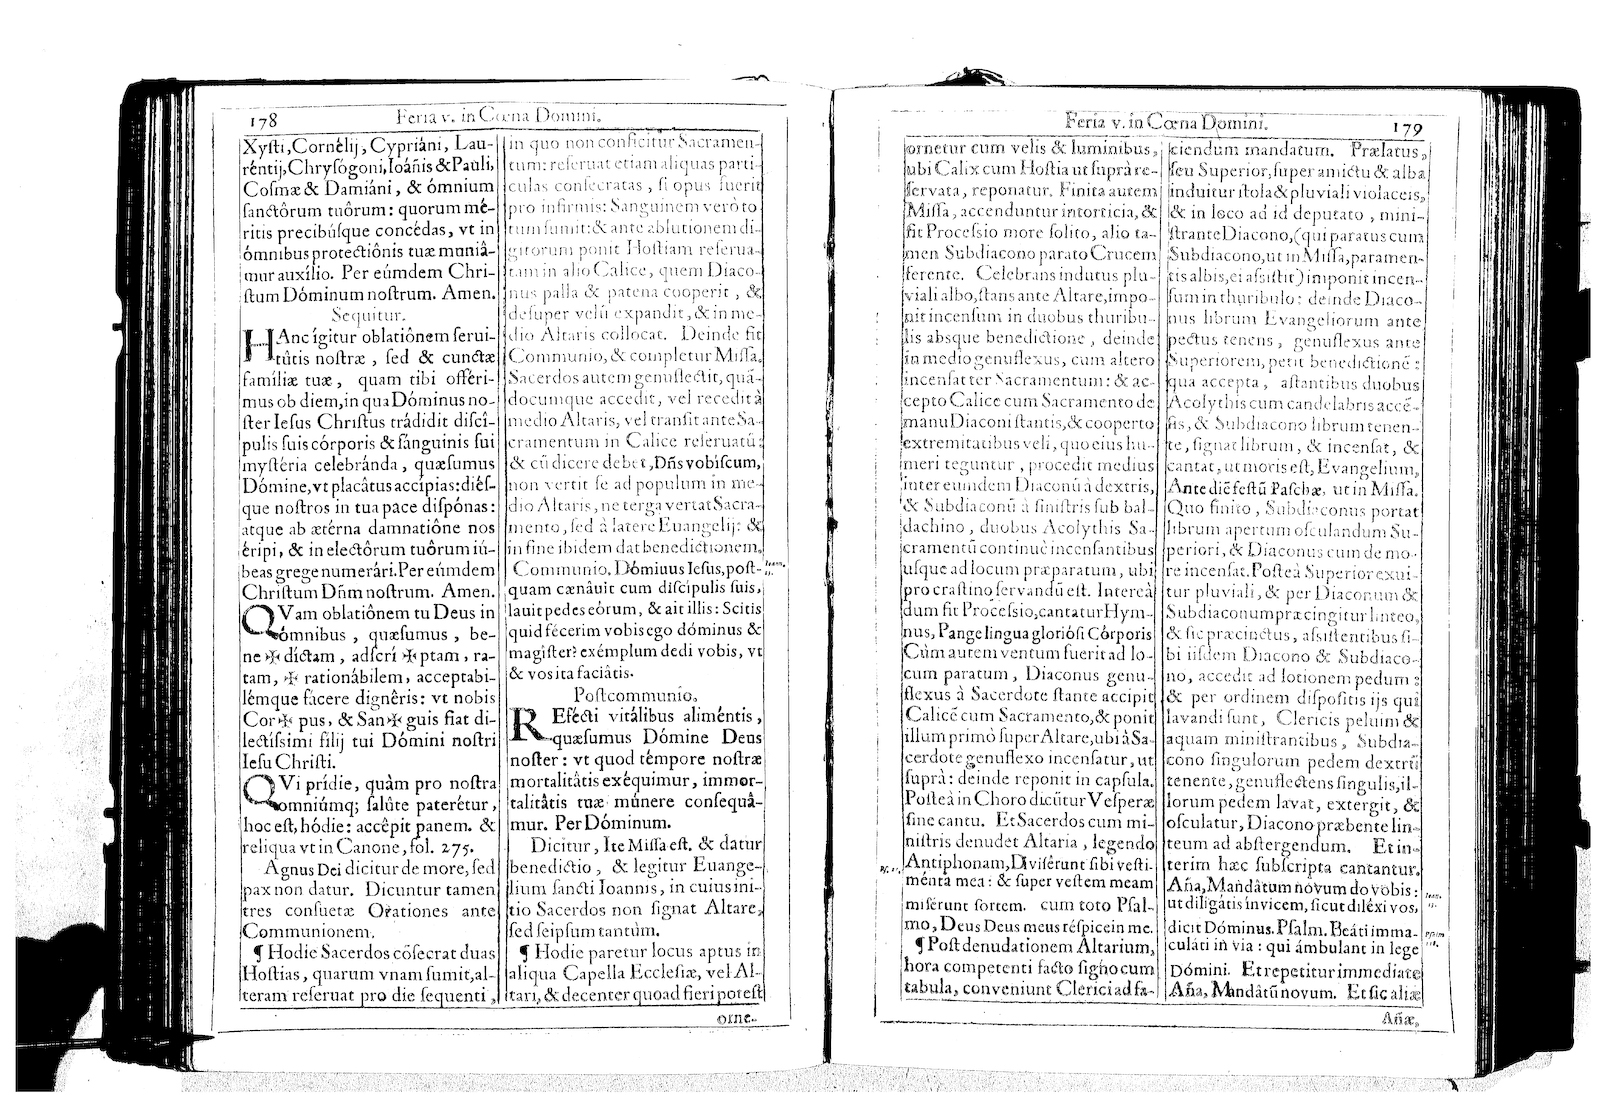 178
Feria v. in Cœna Domini.
Xyſti, Cornélij, Cypriáni, Lau-
réntij, Chryſógoni, Ioánis & Pauli,
Coſmæ & Damiáni, & ómnium
ſanctôrum tuôrum: quorum mé-
ritis precibúſque concédas, vt in
ómnibus protectiônis tuæ muniâ-
mur auxílio. Per eúmdem Chri-
ſtum Dóminum noſtrum. Amen.
Sequitur.
HAnc ígitur oblatiônem ſerui-
tûtis noſtræ, ſed & cunctæ
famíliæ tuæ, quam tibi offéri-
mus ob diem, in qua Dóminus no-
ſter Ieſus Chriſtus trádidit diſcí-
pulis ſuis córporis & ſánguinis ſui
myſtéria celebránda, quæſumus
Dómine, vt placâtus accípias: diéſ-
que noſtros in tua pace diſpónas:
atque ab ætérna damnatiône nos
éripi, & in electôrum tuôrum iú-
beas grege numerári. Per eúmdem
Chriſtum Dñm noſtrum. Amen.
QVam oblatiônem tu Deus in
ómnibus, quæſumus, be-
ne ✠ díctam, adſcrí ✠ ptam, ra-
tam, ✠ rationábilem, acceptabi-
lémque fácere dignêris: vt nobis
Cor ✠ pus, & San ✠ guis fiat di-
lectíſsimi fílij tui Dómini noſtri
Ieſu Chriſti.
QVi prídie, quàm pro noſtra
omniúmq; ſalûte paterétur,
hoc eſt, hódie: accêpit panem. &
reliqua vt in Canone, fol. 275.
Agnus Dei dicitur de more, ſed
pax non datur. Dicuntur tamen
tres conſuetæ Orationes ante
Communionem.
¶ Hodie Sacerdos cõſecrat duas
Hoſtias, quarum vnam ſumit, al-
teram reſeruat pro die ſequenti,
in quo non conficitur Sacramen-
tum: reſeruat etiam aliquas parti-
culas conſecratas, ſi opus fuerit
pro infirmis: Sanguinem verò to
tum ſumit: & ante ablutionem di-
gitorum ponit Hoſtiam reſerua-
tam in alio Calice, quem Diaco-
nus palla & patena cooperit, &
deſuper velũ expandit, & in me-
dio Altaris collocat. Deinde fit
Communio, & completur Miſſa.
Sacerdos autem genuflectit, quã-
documque accedit, vel recedit à
medio Altaris, vel tranſit ante Sa-
cramentum in Calice reſeruatũ:
& cũ dicere debet, Dñs vobiſcum,
non vertit ſe ad populum in me-
dio Altaris, ne terga vertat Sacra-
mento, ſed à latere Euangelij: &
in fine ibidem dat benedictionem.
Communio. Dómiuus Ieſus, poſt-
quam cænâuit cum diſcípulis ſuis,
lauit pedes eórum, & ait illis: Scitis
quid fécerim vobis ego dóminus &
magíſter? exémplum dedi vobis, vt
& vos ita faciâtis.
Poſtcommunio.
REfécti vitálibus aliméntis,
quæſumus Dómine Deus
noſter: vt quod témpore noſtræ
mortalitâtis exéquimur, immor-
talitâtis tuæ múnere conſequâ-
mur. Per Dóminum.
Dicitur, Ite Miſſa eſt. & datur
benedictio, & legitur Euange-
lium ſancti Ioannis, in cuius ini-
tio Sacerdos non ſignat Altare,
ſed ſeipſum tantùm.
¶ Hodie paretur locus aptus in
aliqua Capella Eccleſiæ, vel Al-
tari, & decenter quoad fieri poteſt
orne-
Feria v. in Cœna Domini.
179
ornetur cum velis & luminibus,
ubi Calix cum Hoſtia ut ſuprà re-
ſervata, reponatur. Finita autem
Miſſa, accenduntur intorticia, &
fit Proceſsio more ſolito, alio ta-
men Subdiacono parato Crucem
ferente. Celebrans indutus plu-
viali albo, ſtans ante Altare, impo-
nit incenſum in duobus thuribu-
lis absque benedictione, deinde
in medio genuflexus, cum altero
incenſat ter Sacramentum: & ac-
cepto Calice cum Sacramento de
manu Diaconi ſtantis, & cooperto
extremitatibus veli, quo ejus hu-
meri teguntur, procedit medius
inter eumdem Diaconũ à dextris,
& Subdiaconũ à ſiniſtris ſub bal-
dachino, duobus Acolythis Sa-
cramentũ continuè incenſantibus
uſque ad locum præparatum, ubi
pro craſtino ſervandũ eſt. Intereà
dum fit Proceſsio, cantatur Hym-
nus, Pange lingua glorióſi Córporis
Cùm autem ventum fuerit ad lo-
cum paratum, Diaconus genu-
flexus à Sacerdote ſtante accipit
Calicẽ cum Sacramento, & ponit
illum primò ſuper Altare, ubi à Sa-
cerdote genuflexo incenſatur, ut
ſuprà: deinde reponit in capſula.
Poſteà in Choro dicũtur Veſperæ
ſine cantu. Et Sacerdos cum mi-
niſtris denudet Altaria, legendo
Antiphonam, Diviſérunt ſibi veſti-
ménta mea: & ſuper veſtem meam
miſérunt ſortem. cum toto Pſal-
mo, Deus Deus meus réſpice in me.
¶ Poſt denudationem Altarium,
hora competenti facto ſigno cum
tabula, conveniunt Clerici ad fa-
ciendum mandatum. Prælatus,
ſeu Superior, ſuper amictu & alba
induitur ſtola & pluviali violaceis,
& in loco ad id deputato, mini-
ſtrante Diacono, (qui paratus cum
Subdiacono, ut in Miſſa, paramen-
tis albis, ei aſsiſtit) imponit incen-
ſum in thuribulo: deinde Diaco-
nus librum Evangeliorum ante
pectus tenens, genuflexus ante
Superiorem, petit benedictionẽ:
qua accepta, aſtantibus duobus
Acolythis cum candelabris accẽ-
ſis, & Subdiacono librum tenen-
te, ſignat librum, & incenſat, &
cantat, ut moris eſt, Evangelium,
Ante diẽ feſtũ Paſchæ, ut in Miſſa.
Quo finito, Subdiaconus portat
librum apertum oſculandum Su-
periori, & Diaconus cum de mo-
re incenſat. Poſteà Superior exui-
tur pluviali, & per Diaconum &
Subdiaconum præcingitur linteo,
& ſic præcinctus, aſsiſtentibus ſi-
bi iiſdem Diacono & Subdiaco-
no, accedit ad lotionem pedum:
& per ordinem diſpoſitis ijs qui
lavandi ſunt, Clericis peluim &
aquam miniſtrantibus, Subdia-
cono ſingulorum pedem dextrũ
tenente, genuflectens ſingulis, il-
lorum pedem lavat, extergit, &
oſculatur, Diacono præbente lin-
teum ad abſtergendum. Et in-
terim hæc ſubſcripta cantantur.
Aña, Mandâtum novum do vobis:
ut diligâtis invicem, ſicut diléxi vos,
dicit Dóminus. Pſalm. Beáti imma-
culáti in via: qui ámbulant in lege
Dómini. Et repetitur immediate
Aña, Mandâtũ novum. Et ſic aliæ
Añæ,